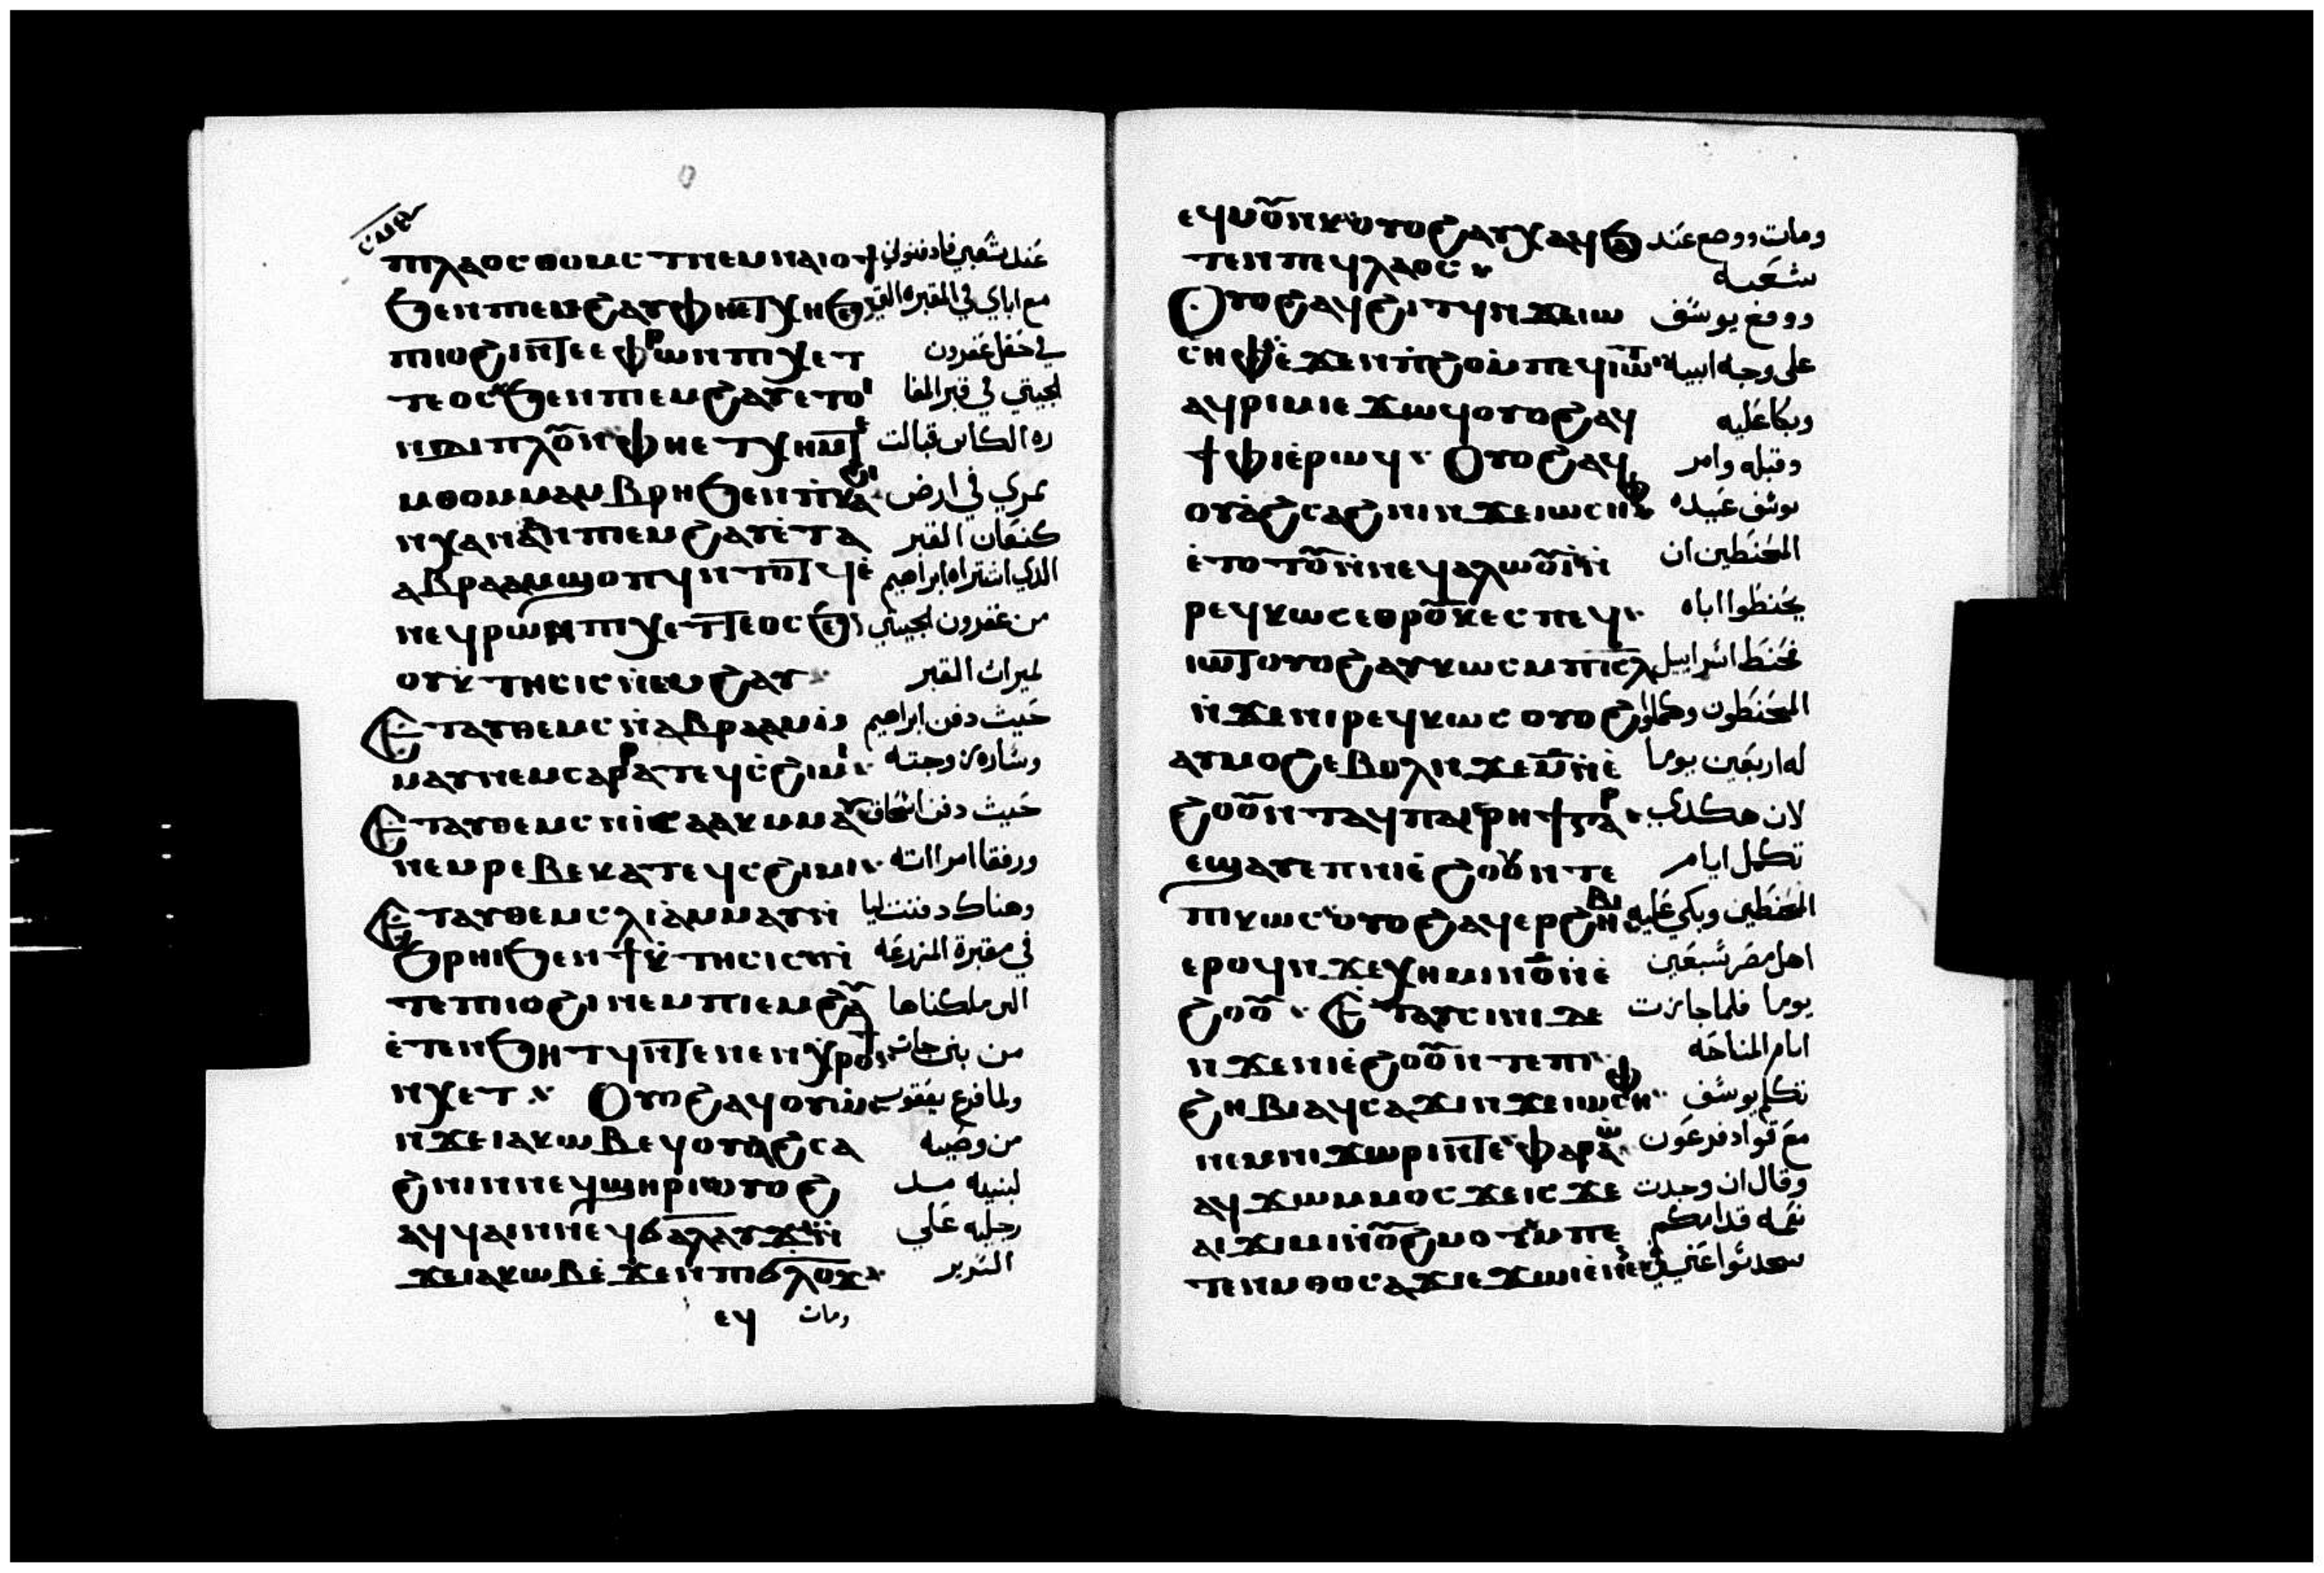 ⲡⲓⲗⲁⲟⲥ ⲑⲟⲙⲥⲧ ⲛⲉⲙ ⲛⲁⲓⲟϯ عند شعبي فادفنوني
ϧⲉⲛ ⲡⲓⲉⲙϩⲁⲩ ⲫⲏⲉⲧⲭⲏ ϧⲉ مع اباي في المقبره التي
ⲡⲓⲓⲟϩⲓ ⲛⲧⲉ ⲉⲫⲣⲱⲛ ⲡⲓⲭⲉⲧ في حقل عفرون
ⲧⲉⲟⲥ ϧⲉⲛ ⲡⲓⲉⲙϩⲁⲩ ⲉⲧⲟⲓ الحيتي في قبر المغا
ⲛⲇⲓⲡⲗⲟⲩⲛ ⲫⲏⲉⲧⲭⲏ ⲙⲡⲉ ره الكاين قبالت
ⲙⲑⲟ ⲙⲙⲁⲙⲃⲣⲏ ϧⲉⲛ ⲡⲕⲁϩⲓ ممري في ارض
ⲛⲭⲁⲛⲁⲁⲛ ⲡⲓⲉⲙϩⲁⲩ ⲉⲧⲁ كنعان القبر
ⲁⲃⲣⲁⲁⲙ ϣⲟⲡϥ ⲛⲧⲟⲧϥ ⲛⲉ الدي اشتراه ابراهيم
ⲫⲣⲱⲛ ⲡⲓⲭⲉⲧⲧⲉⲟⲥ ϧⲉⲛ من عفرون الحيتي
ⲟⲩⲕⲧⲏⲥⲓⲥ ⲛⲉⲙϩⲁⲩ لميرات القبر
Ⲉⲧⲁⲩⲑⲉⲙⲥ ⲛⲁⲃⲣⲁⲁⲙ حيث دفن ابراهيم
ⲙⲙⲁⲩ ⲛⲉⲙ ⲥⲁⲣⲣⲁ ⲧⲉϥⲥϩⲓⲙⲓ وساره زوجته
Ⲉⲧⲁⲩⲑⲉⲙⲥ ⲛⲓⲥⲁⲁⲕ ⲙⲙⲁⲩ حيث دفن اسحاق
ⲛⲉⲙ ⲣⲉⲃⲉⲕⲁ ⲧⲉϥⲥϩⲓⲙⲓ ورفقا امراته
Ⲉⲧⲁⲩⲑⲉⲙⲥ ⲗⲓⲁ ⲙⲙⲁⲩ ⲛ وهناك دفنت ليا
ϧⲣⲏⲓ ϧⲉⲛ ϯⲕⲧⲏⲥⲓⲥ ⲛ في مقبرة المزرعه
ⲧⲉ ⲡⲓⲓⲟϩⲓ ⲛⲉⲙ ⲡⲓⲉⲙϩⲁⲩ التي ملكناها
ⲉⲧⲉⲛϧⲏⲧϥ ⲛⲧⲉ ⲛⲉⲛϣⲏⲣⲓ من بني حات
ⲛⲭⲉⲧ Ⲟⲩⲟϩ ⲁϥⲟⲩⲱ ولما فرغ يعقوب
ⲛϫⲉ ⲓⲁⲕⲱⲃ ⲉϥⲟⲩⲁϩⲥⲁ من وصيه
ϩⲛⲓ ⲛⲛⲉϥϣⲏⲣⲓ ⲟⲩⲟϩ لبنيه مد
ⲁϥϥⲁⲓ ⲛⲛⲉϥϭⲁⲗⲁⲩϫ ⲛ رجليه علي
ϫⲉ ⲓⲁⲕⲱⲃ ⲉϫⲉⲛ ⲡⲓϭⲗⲟϫ السرير
ⲉϥ ومات
ⲉϥⲙⲟⲩⲛⲕ ⲟⲩⲟϩ ⲁⲩⲭⲁϥ ϧⲁ ومات ووضع عند
ⲧⲉⲛ ⲡⲉϥⲗⲁⲟⲥ شعبه
Ⲟⲩⲟϩ ⲁϥϩⲓⲧϥ ⲛϫⲉ ⲓⲱ ووقع يوسف
ⲥⲏⲫ ⲉϫⲉⲛ ⲡϩⲟ ⲙⲡⲉϥⲓⲱⲧ على وجه ابيه
ⲁϥⲣⲓⲙⲓ ⲉϫⲱϥ ⲟⲩⲟϩ ⲁϥ وبكا عليه
ϯⲫⲓ ⲉⲣⲱϥ Ⲟⲩⲟϩ ⲁϥ وقبله وامر
ⲟⲩⲁϩⲥⲁϩⲛⲓ ⲛϫⲉ ⲓⲱⲥⲏⲫ يوسف عبيده
ⲉⲧⲟⲧⲟⲩ ⲛⲛⲉϥⲁⲗⲱⲟⲩⲓ ⲛ المحنطين ان
ⲣⲉϥⲕⲱⲥ ⲉⲑⲣⲟⲩⲕⲉⲥ ⲡⲉϥ يحنطوا اباه
ⲓⲱⲧ ⲟⲩⲟϩ ⲁⲩⲕⲱⲥ ⲙⲡⲓⲥⲗ فحنط اسراييل
ⲛϫⲉ ⲛⲓⲣⲉϥⲕⲱⲥ ⲟⲩⲟϩ المحنطون وكملوا
ⲁⲩⲙⲟϩ ⲉⲃⲟⲗ ⲛϫⲉ ⲙ ⲛⲉ له اربعين يوما
ϩⲟⲟⲩ ⲛⲧⲁϥ ⲡⲁⲓⲣⲏϯ ⲅⲁⲣ لان هكدي
ⲉϣⲁⲩⲉⲡ ⲛⲓⲉϩⲟⲟⲩ ⲛⲧⲉ تكمل ايام
ⲡⲓⲕⲱⲥ ⲟⲩⲟϩ ⲁϥⲉⲣϩⲏⲃⲓ المحنطين وبكي عليه
ⲉⲣⲟϥ ⲛϫⲉ ⲭⲏⲙⲓ ⲛⲟ ⲛⲉ اهل مصر سبعين
ϩⲟⲟⲩ Ⲉⲧⲁⲩⲥⲓⲛⲓ ⲇⲉ يوما فلما جازت
ⲛϫⲉ ⲛⲓⲉϩⲟⲟⲩ ⲛⲧⲉ ⲡⲓ ايام المناحه
ϩⲏⲃⲓ ⲁϥⲥⲁϫⲓ ⲛϫⲉ ⲓⲱⲥⲏⲫ تكلم يوسف
ⲛⲉⲙ ⲛⲓϫⲱⲣⲓ ⲛⲧⲉ ⲫⲁⲣⲁⲱ مع قواد فرعون
ⲁϥϫⲱ ⲙⲙⲟⲥ ϫⲉ ⲓⲥϫⲉ وقال ان وجدت
ⲁⲓϫⲓⲙⲓ ⲛⲟⲩϩⲙⲟⲧ ⲙⲡⲉ نعمه قدامكم
ⲧⲉⲛⲙⲑⲟ ⲥⲁϫⲓ ⲉϫⲱⲓ ⲉⲛⲉⲛ تحدتوا عني في